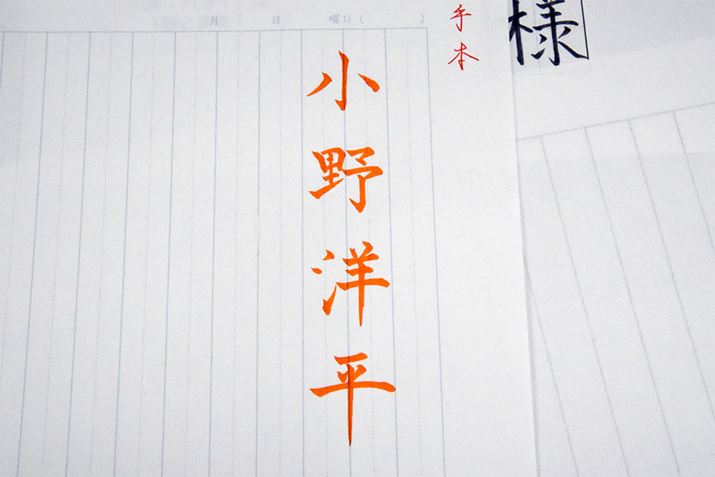 様
手本
小野洋平
月 日 曜日( )